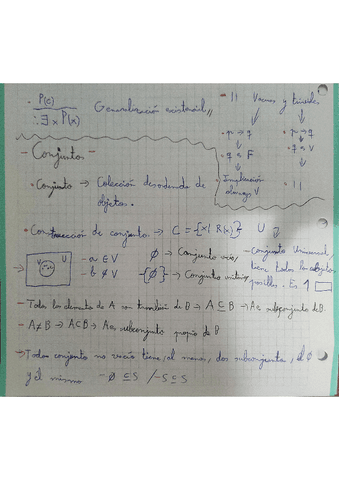 · P(c)
∴ ∃x P(x)
Generalización existencial //
- Vacuas y triviales
· p → q · p → q
· F · q ≡ V
· Implicación · 11
siempre V
- Conjuntos -
· Conjunto → Colección desordenada de
objetos.
· Construcción de conjunto → C = {x | R(x)} U
- a ∈ V ∅ → Conjunto vacío - conjunto Universal,
- b ∉ V - {∅} → Conjunto unitario tiene todos los objetos
posibles. Es
- Todo los elementos de A son también de B → A ⊆ B → A es subconjunto de B.
- A ≠ B → A ⊂ B → A es subconjunto propio de B
→ Todo conjunto no vacío tiene, al menos, dos subconjuntos, el ∅
y él mismo - ∅ ⊆ S / - S ⊆ S